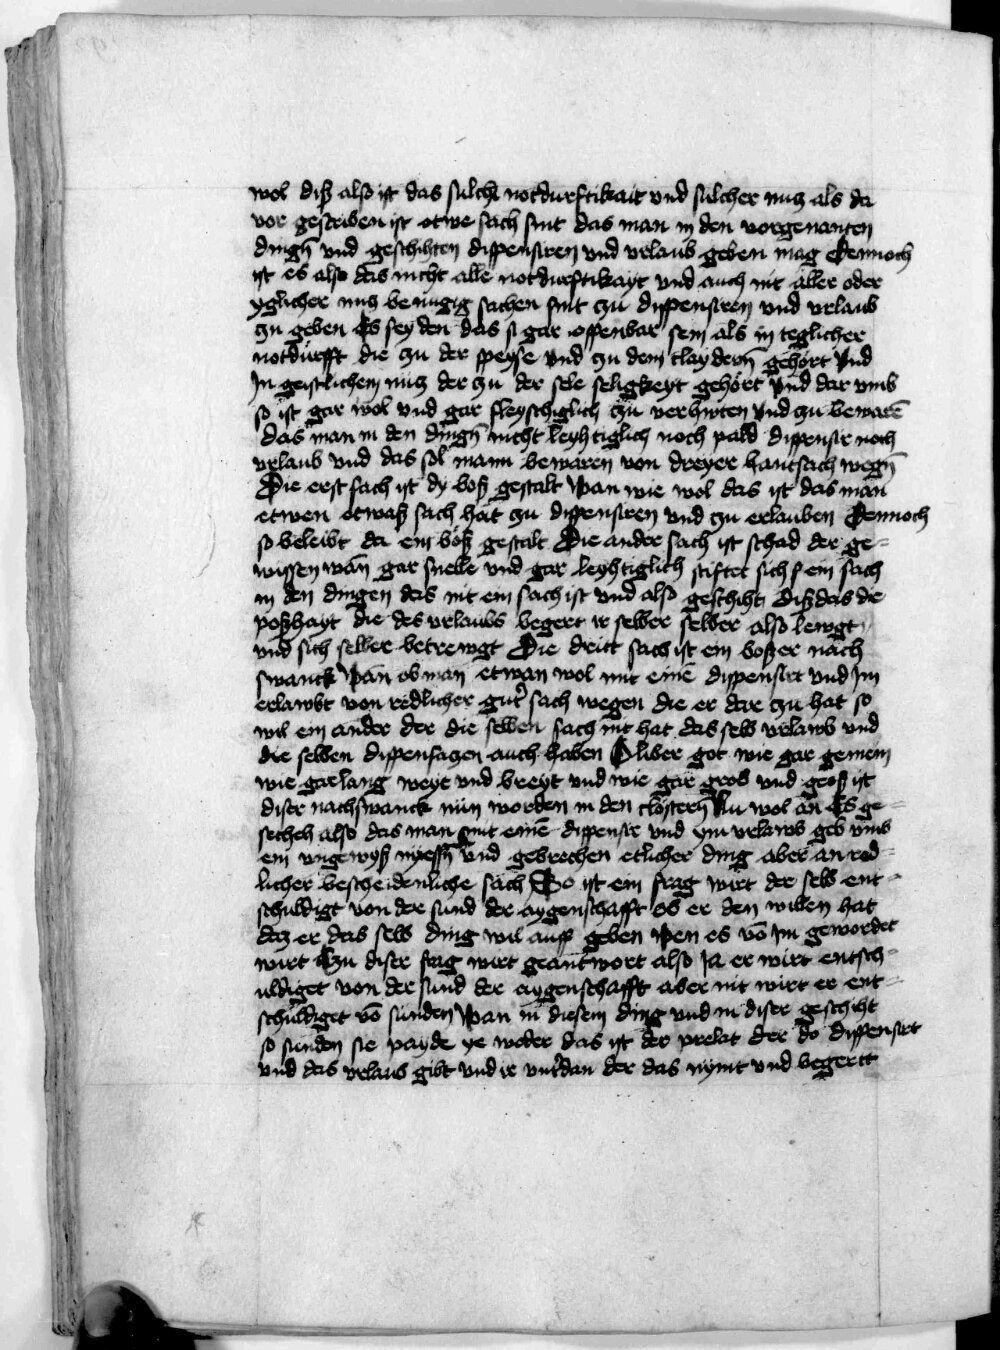 wol diß also ist das sulche notdurftikait vnd sulcher nucz als da
vor gescriben ist etwe sach sint das man in den vorgenanten
dingn̄ vnd geschihten dispensiren vnd vrlaub geben mag Dennoch
ist es also das nicht alle notdurftikayt vnd auch nit aller oder
yglicher nucz benugig sachen sint zu dispensiren vnd vrlaub
zu geben Es sey den das si gar offenbar sein als in teglicher
notdurfft die zu der speyse vnd zu dem claydern̄ gehört Vnd
In geistlichem nucz der zu der sele seligkeyt gehört Vnd dar vmb
so ist gar wol vnd gar fleyschiglich zu verhuten Vnd zu bewarē
das man in den dingn̄ nicht leyhtiglich noch pald dispensir noch
vrlaub vnd das sol mann bewaren von dreyer hautsach wegn̄
Die erst sach ist dy boß gestalt Wan wie wol das ist das man
etwen etwaß sach hat zu dispensiren vnd zu erlauben Dennoch
so beleibt da ein böß gestalt Die ander sach ist schad der ge-
wissen wān gar snelle vnd gar leyhtiglich stiftet sich ein sach
in den dingen das nit ein sach ist vnd also geschiht diß das die
poßhayt die des vrlaubs begert ir selber selber also lewgt
vnd sich selber betrewgt Die dritt sach ist ein boßer nach
swanck Wān ob man etwan wol mit einē dispensirt vnd Im
erlawbt von redlicher gut' sach wegen die er dar zu hat so
wil ein ander der die selben sach nit hat das selb vrlawb vnd
die selben dispensazen auch haben O liber got wie gar gemein
wie gar lang weyt vnd breyt vnd wie gar grob vnd groß ist
diser nachswanck nun worden in den clöstern̄ Nu wol an Es ge-
scheh also das man mit einē dispensir vnd ym vrlawb geb vmb
ein vngewyß nyessn̄ vnd gebrechen etlicher ding aber an red-
licher bescheidenliche sach So ist ein frag wirt der selb ent-
schuldigt von der sund der aygenschafft ob er den willen hat
daz er das selb ding wil auff geben wen es vō Im gewordet
wirt Czu diser frag wirt geantwort also Ja er wirt entsch-
uldiget von der sund der aygenschafft aber nit wirt er ent-
schuldiget vō sunden Wan in diesem ding vnd in diser geschiht
so sunden sie payde ye weder das ist der prelat der do dispensirt
vnd das vrlaub gibt vnd ir vnt'dan der das nymt vnd begertt